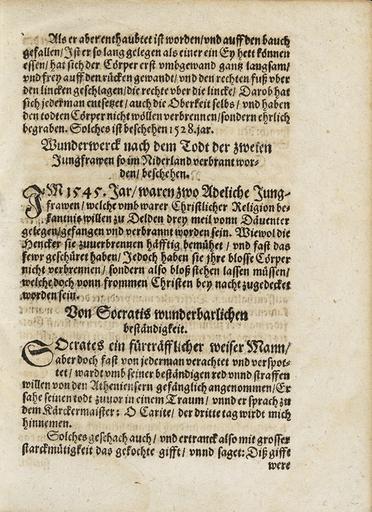 Als er aber enthaubtet ist worden/ vnd auff den bauch
gefallen/ Ist er so lang gelegen als einer ein Ey hett können
essen/ hat sich der Cörper erst vmbgewand gantz langsam/
vnd frey auff den rücken gewandt/ vnd den rechten fuß vber
den lincken geschlagen/ die rechte vber die lincke/ Darob hat
sich jederman entsetzet/ auch die Oberkeit selbs/ vnd haben
den todten Cörper nicht wöllen verbrennen/ sondern ehrlich
begraben. Solches ist beschehen 1528. jar.
Wunderwerck nach dem Todt der zweien
Jungfrawen so im Niderland verbrant wor-
den/ beschehen.
IM 1545. Jar/ waren zwo Adeliche Jung-
frawen/ welche vmb warer Christlicher Religion be-
kantnis willen zu Delden drey meil vonn Däuenter
gelegen/ gefangen vnd verbrannt worden sein. Wiewol die
Hencker sie zuuerbrennen häfftig bemühet/ vnd fast das
fewr geschüret haben/ Jedoch haben sie jhre blosse Cörper
nicht verbrennen/ sondern also bloß stehen lassen müssen/
welche doch vonn frommen Christen bey nacht zugedecket
worden sein.
Von Socratis wunderbarlichen
beständigkeit.
SOcrates ein fürträfflicher weiser Mann/
aber doch fast von jederman verachtet vnd verspot-
tet/ wardt vmb seiner beständigen red vnnd straffen
willen von den Atheniensern gefänglich angenommen/ Er
sahe seinen todt zuuor in einem Traum/ vnnd er sprach zu
dem Kärckermaister: O Carite/ der dritte tag wirdt mich
hinnemen.
Solches geschach auch/ vnd ertranck also mit grosser
starckmütigkeit das gekochte gifft/ vnnd saget: Diß gifft
were